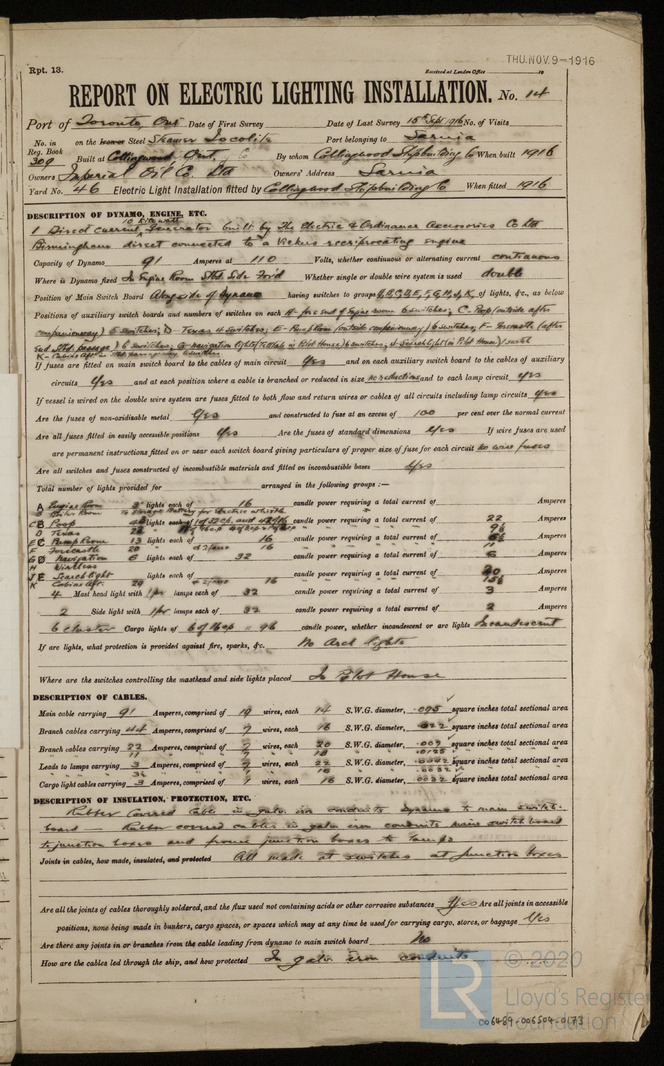 THU.NOV.9-1916
Rpt. 13.
Received at London Office 19
REPORT ON ELECTRIC LIGHTING INSTALLATION. No. 14
Port of Toronto, Ont Date of First Survey Date of Last Survey 15th Sept 1916 No. of Visits
No. in Reg. Book 309 on the Iron or Steel Steamer Iocolite Port belonging to Sarnia
Built at Collingwood, Ont. By whom Collingwood Shipbuilding Co When built 1916
Owners Imperial Oil Co. Ltd Owners' Address Sarnia
Yard No. 46 Electric Light Installation fitted by Collingwood Shipbuilding Co When fitted 1916
DESCRIPTION OF DYNAMO, ENGINE, ETC.
1 Direct Current 10 Kilowatt Generator built by The Electric & Ordinance Accessories Co Ltd
Birmingham direct connected to a Vickers reciprocating engine
Capacity of Dynamo 91 Amperes at 110 Volts, whether continuous or alternating current continuous
Where is Dynamo fixed In Engine Room Stbd Side For'd Whether single or double wire system is used double
Position of Main Switch Board Alongside of Dynamo having switches to groups of lights, &c., as below
Positions of auxiliary switch boards and numbers of switches on each A- for'd end of Engine room 6 switches; C. Poop (outside after
companionway) 6 switches; D- Texas 4 switches; E- Pump Room (outside companionway) 6 switches; F- Forecastle (after
end Stbd passage) 6 switches; G- navigation lights (Telltale in Pilot House) 6 switches; H- Searchlight (in Pilot House) 1 switch
If fuses are fitted on main switch board to the cables of main circuit Yes and on each auxiliary switch board to the cables of auxiliary
circuits Yes and at each position where a cable is branched or reduced in size no reductions and to each lamp circuit yes
If vessel is wired on the double wire system are fuses fitted to both flow and return wires or cables of all circuits including lamp circuits yes
Are the fuses of non-oxidisable metal Yes and constructed to fuse at an excess of 100 per cent over the normal current
Are all fuses fitted in easily accessible positions Yes Are the fuses of standard dimensions Yes If wire fuses are used
are permanent instructions fitted on or near each switch board giving particulars of proper size of fuse for each circuit No wire fuses
Are all switches and fuses constructed of incombustible materials and fitted on incombustible bases Yes
Total number of lights provided for arranged in the following groups :—
A Engine Room lights each of 16 candle power requiring a total current of Amperes
B Boiler Room
C B Poop lights each of candle power requiring a total current of 22 Amperes
D Texas
E C Pump Room 13 lights each of 16 candle power requiring a total current of Amperes
F Forecastle 20 16
G D Navigation 6 lights each of 32 candle power requiring a total current of 6 Amperes
H Windlass
J E Searchlight lights each of candle power requiring a total current of Amperes
K Cabins Aft. 16
4 Mast head light with 1 pr lamps each of 32 candle power requiring a total current of 3 Amperes
2 Side light with 1 pr lamps each of 32 candle power requiring a total current of 2 Amperes
6 cluster Cargo lights of 6 of 16 cp = 96 candle power, whether incandescent or arc lights Incandescent
If arc lights, what protection is provided against fire, sparks, &c. No Arc lights
Where are the switches controlling the masthead and side lights placed In Pilot House
DESCRIPTION OF CABLES.
Main cable carrying 91 Amperes, comprised of 19 wires, each 14 S.W.G. diameter, .095 square inches total sectional area
Branch cables carrying 44 Amperes, comprised of 7 wires, each 16 S.W.G. diameter, .022 square inches total sectional area
Branch cables carrying 22 Amperes, comprised of 7 wires, each 20 S.W.G. diameter, .007 square inches total sectional area
Leads to lamps carrying 3 Amperes, comprised of 7 wires, each 22 S.W.G. diameter, square inches total sectional area
Cargo light cables carrying 3 Amperes, comprised of 1 wires, each 16 S.W.G. diameter, .0032 square inches total sectional area
DESCRIPTION OF INSULATION, PROTECTION, ETC.
Rubber Covered Cable in gator iron conduits Dynamo to main switch-
board — Rubber covered cables in gator iron conduits main switch board
to junction boxes and from junction boxes to lamps
Joints in cables, how made, insulated, and protected All made at switches at junction boxes
Are all the joints of cables thoroughly soldered, and the flux used not containing acids or other corrosive substances Yes Are all joints in accessible
positions, none being made in bunkers, cargo spaces, or spaces which may at any time be used for carrying cargo, stores, or baggage Yes
Are there any joints in or branches from the cable leading from dynamo to main switch board No
How are the cables led through the ship, and how protected In gator iron conduits
LR © 2020
Lloyd's Register
Foundation
006489-006504-0173